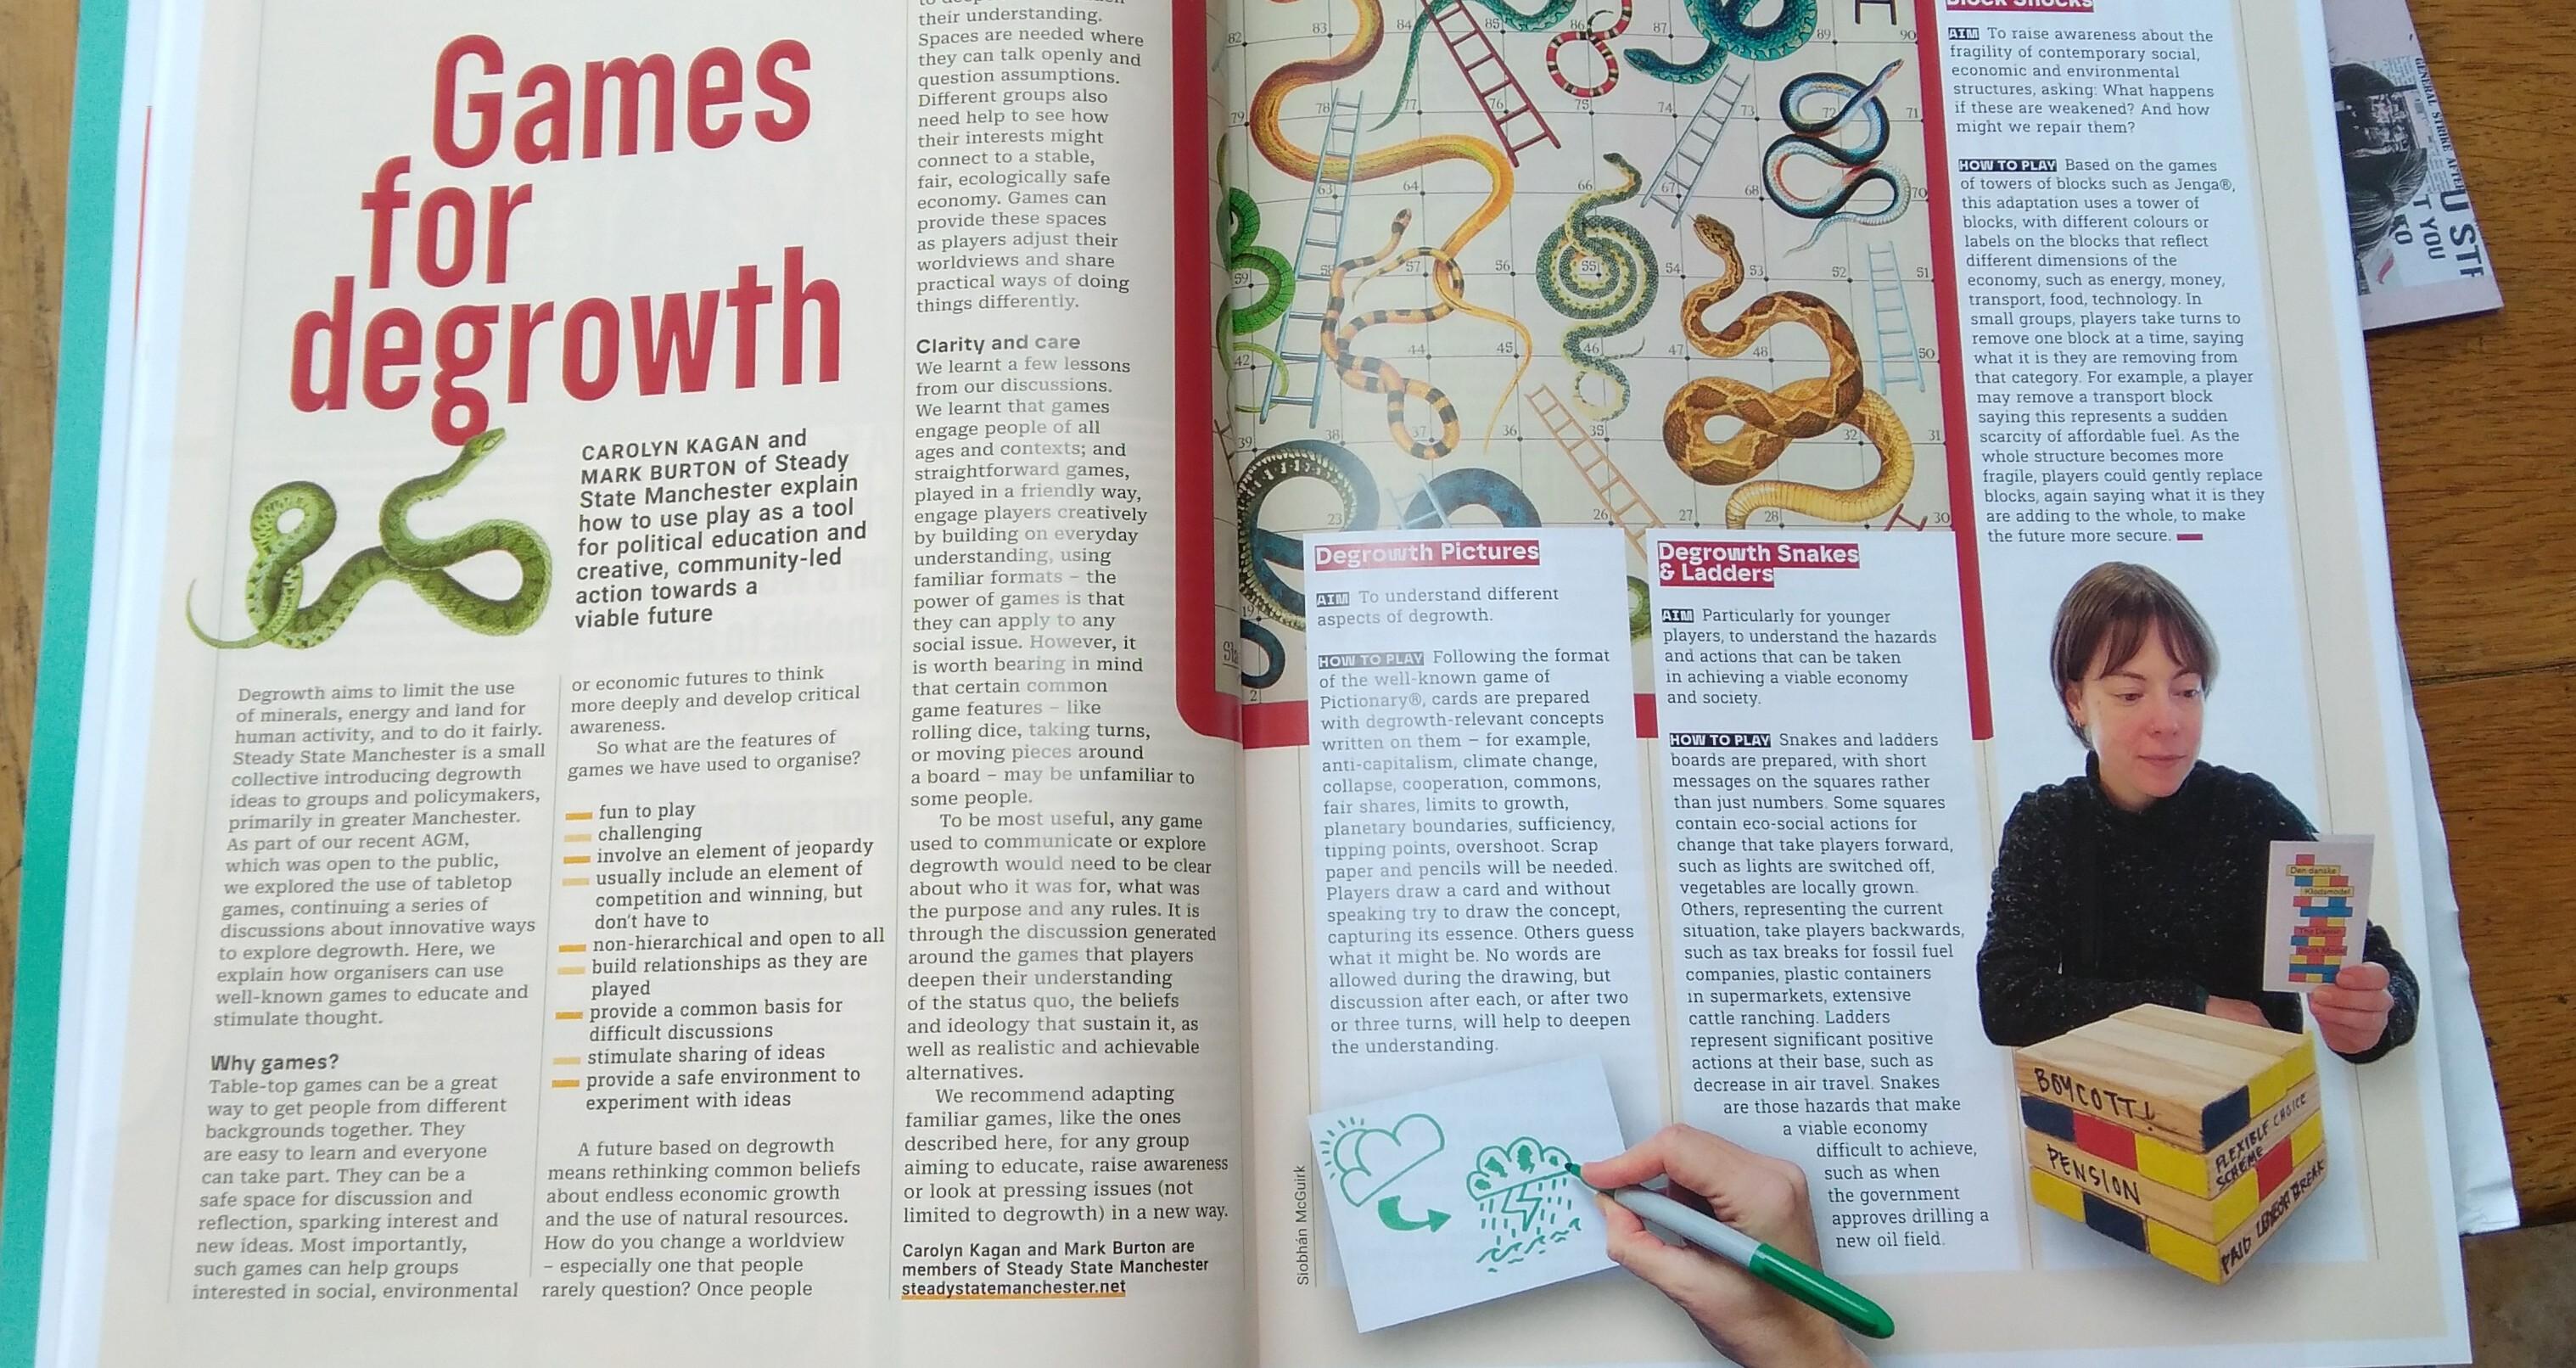 Games
for
degrowth
CAROLYN KAGAN and
MARK BURTON of Steady
State Manchester explain
how to use play as a tool
for political education and
creative, community-led
action towards a
viable future
Degrowth aims to limit the use
of minerals, energy and land for
human activity, and to do it fairly.
Steady State Manchester is a small
collective introducing degrowth
ideas to groups and policymakers,
primarily in greater Manchester.
As part of our recent AGM,
which was open to the public,
we explored the use of tabletop
games, continuing a series of
discussions about innovative ways
to explore degrowth. Here, we
explain how organisers can use
well-known games to educate and
stimulate thought.
Why games?
Table-top games can be a great
way to get people from different
backgrounds together. They
are easy to learn and everyone
can take part. They can be a
safe space for discussion and
reflection, sparking interest and
new ideas. Most importantly,
such games can help groups
interested in social, environmental
or economic futures to think
more deeply and develop critical
awareness.
So what are the features of
games we have used to organise?
fun to play
challenging
involve an element of jeopardy
usually include an element of
competition and winning, but
don't have to
non-hierarchical and open to all
build relationships as they are
played
provide a common basis for
difficult discussions
stimulate sharing of ideas
provide a safe environment to
experiment with ideas
A future based on degrowth
means rethinking common beliefs
about endless economic growth
and the use of natural resources.
How do you change a worldview
– especially one that people
rarely question? Once people
their understanding.
Spaces are needed where
they can talk openly and
question assumptions.
Different groups also
need help to see how
their interests might
connect to a stable,
fair, ecologically safe
economy. Games can
provide these spaces
as players adjust their
worldviews and share
practical ways of doing
things differently.
Clarity and care
We learnt a few lessons
from our discussions.
We learnt that games
engage people of all
ages and contexts; and
straightforward games,
played in a friendly way,
engage players creatively
by building on everyday
understanding, using
familiar formats – the
power of games is that
they can apply to any
social issue. However, it
is worth bearing in mind
that certain common
game features – like
rolling dice, taking turns,
or moving pieces around
a board – may be unfamiliar to
some people.
To be most useful, any game
used to communicate or explore
degrowth would need to be clear
about who it was for, what was
the purpose and any rules. It is
through the discussion generated
around the games that players
deepen their understanding
of the status quo, the beliefs
and ideology that sustain it, as
well as realistic and achievable
alternatives.
We recommend adapting
familiar games, like the ones
described here, for any group
aiming to educate, raise awareness
or look at pressing issues (not
limited to degrowth) in a new way.
Carolyn Kagan and Mark Burton are
members of Steady State Manchester
steadystatemanchester.net
82 83 84 85 86 87 89 90
79 78 77 76 75 74 73 72 71
63 64 66 67 68 70
59 58 57 56 55 54 53 52 51
42 44 45 46 47 48 50
39 38 37 36 35 32 31
23 26 27 28 30
19
2
Degrowth Pictures
AIM To understand different
aspects of degrowth.
HOW TO PLAY Following the format
of the well-known game of
Pictionary®, cards are prepared
with degrowth-relevant concepts
written on them – for example,
anti-capitalism, climate change,
collapse, cooperation, commons,
fair shares, limits to growth,
planetary boundaries, sufficiency,
tipping points, overshoot. Scrap
paper and pencils will be needed.
Players draw a card and without
speaking try to draw the concept,
capturing its essence. Others guess
what it might be. No words are
allowed during the drawing, but
discussion after each, or after two
or three turns, will help to deepen
the understanding.
Siobhan McGuirk
Degrowth Snakes
& Ladders
AIM Particularly for younger
players, to understand the hazards
and actions that can be taken
in achieving a viable economy
and society.
HOW TO PLAY Snakes and ladders
boards are prepared, with short
messages on the squares rather
than just numbers. Some squares
contain eco-social actions for
change that take players forward,
such as lights are switched off,
vegetables are locally grown.
Others, representing the current
situation, take players backwards,
such as tax breaks for fossil fuel
companies, plastic containers
in supermarkets, extensive
cattle ranching. Ladders
represent significant positive
actions at their base, such as
decrease in air travel. Snakes
are those hazards that make
a viable economy
difficult to achieve,
such as when
the government
approves drilling a
new oil field.
Block Shocks
AIM To raise awareness about the
fragility of contemporary social,
economic and environmental
structures, asking: What happens
if these are weakened? And how
might we repair them?
HOW TO PLAY Based on the games
of towers of blocks such as Jenga®,
this adaptation uses a tower of
blocks, with different colours or
labels on the blocks that reflect
different dimensions of the
economy, such as energy, money,
transport, food, technology. In
small groups, players take turns to
remove one block at a time, saying
what it is they are removing from
that category. For example, a player
may remove a transport block
saying this represents a sudden
scarcity of affordable fuel. As the
whole structure becomes more
fragile, players could gently replace
blocks, again saying what it is they
are adding to the whole, to make
the future more secure.
Den danske
Klodsmodel
The Danish
Block Model
BOYCOTT!
PENSION
FLEXIBLE CHOICE
SCHEME
PAID
GENERAL STRIKE
T YOU